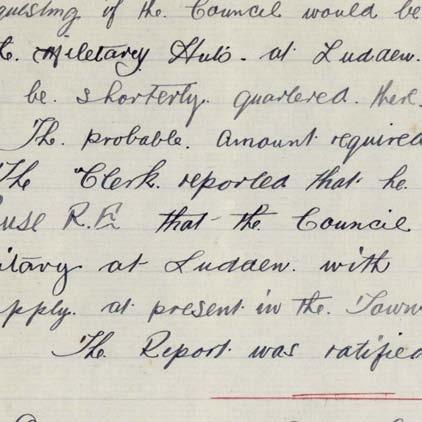 questing of the Council would be
Military Huts. at Ludden.
be. shorterly. quartered. there.
The. probable. amount required
The Clerk. reported that he
use R.E. that the Council
itary at Ludden. with
pply. at present in the. Town
The Report was ratified